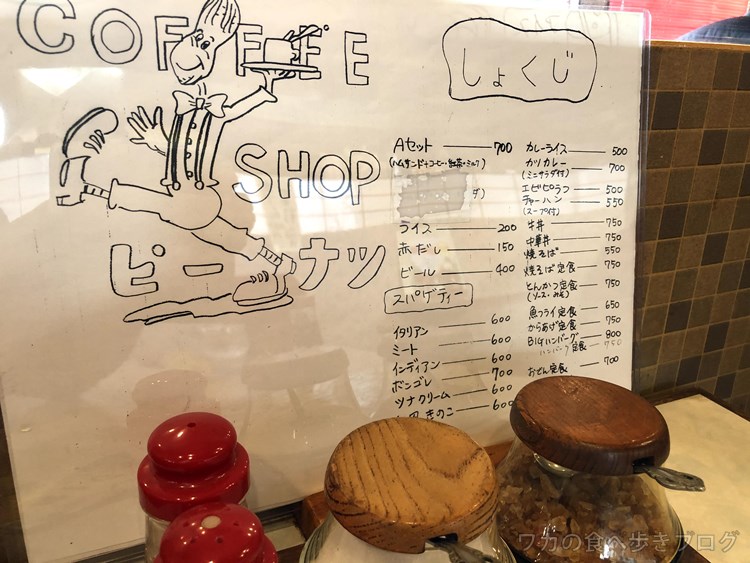 COFFEE
SHOP
ピーナツ
しょくじ
Aセット 700
(ハムサンド+コーヒー・紅茶・ミルク)
ライス 200
赤だし 150
ビール 400
スパゲティー
イタリアン 600
ミート 600
インディアン 600
ボンゴレ 700
ツナクリーム 600
きのこ 600
カレーライス 500
カツカレー 700
(ミニサラダ付)
エビピラフ 500
チャーハン 550
(スープ付)
牛丼 750
中華丼 750
焼そば 550
焼そば定食 750
とんかつ定食 750
(ソース・みそ)
魚フライ定食 650
からあげ定食 750
BIGハンバーグ 800
ハンバーグ定食 750
おでん定食 700
ワカの食べ歩きブログ